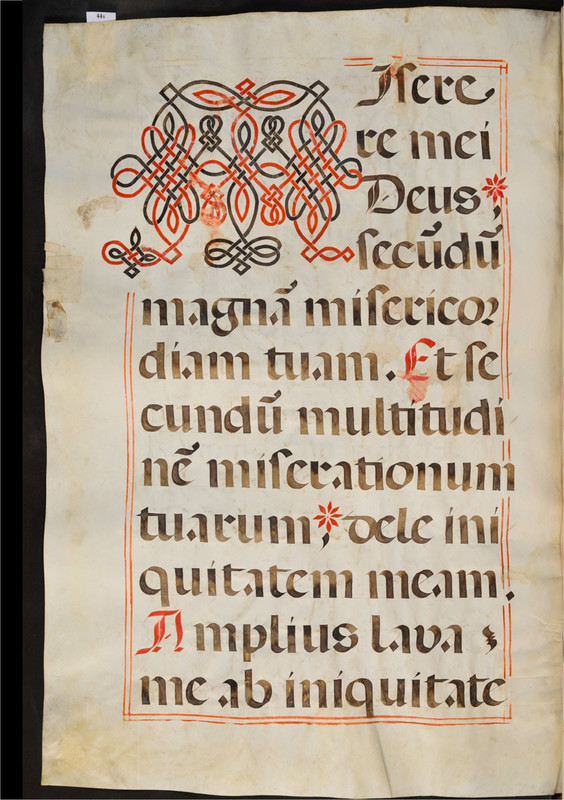 44v
MIſere
re mei
Deus *;
ſecūdū
magnā miſericoꝛ
diam tuam. Et ſe
cundū multitudi
nē miſerationum
tuarum *; dele ini
quitatem meam.
Amplius lava ;
me ab iniquitate